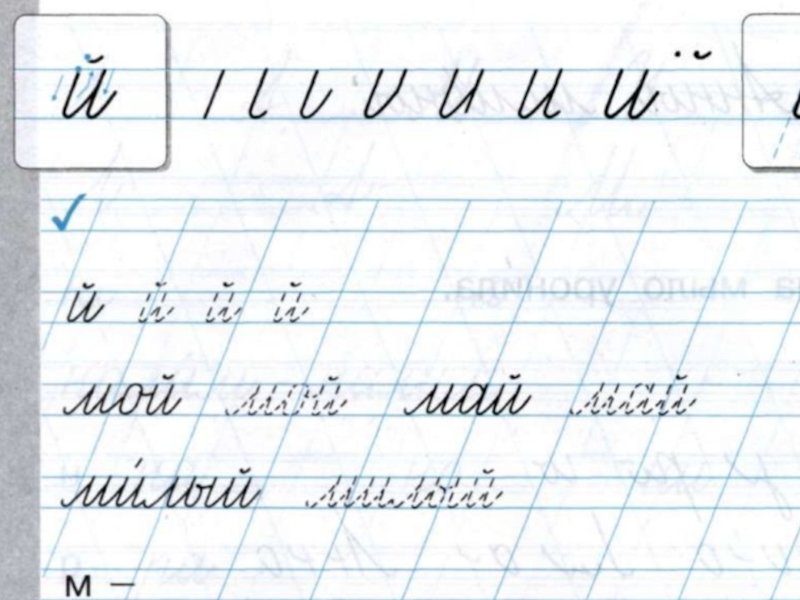 й й
й й й й
мой мой май май
ми́лый милый
м —